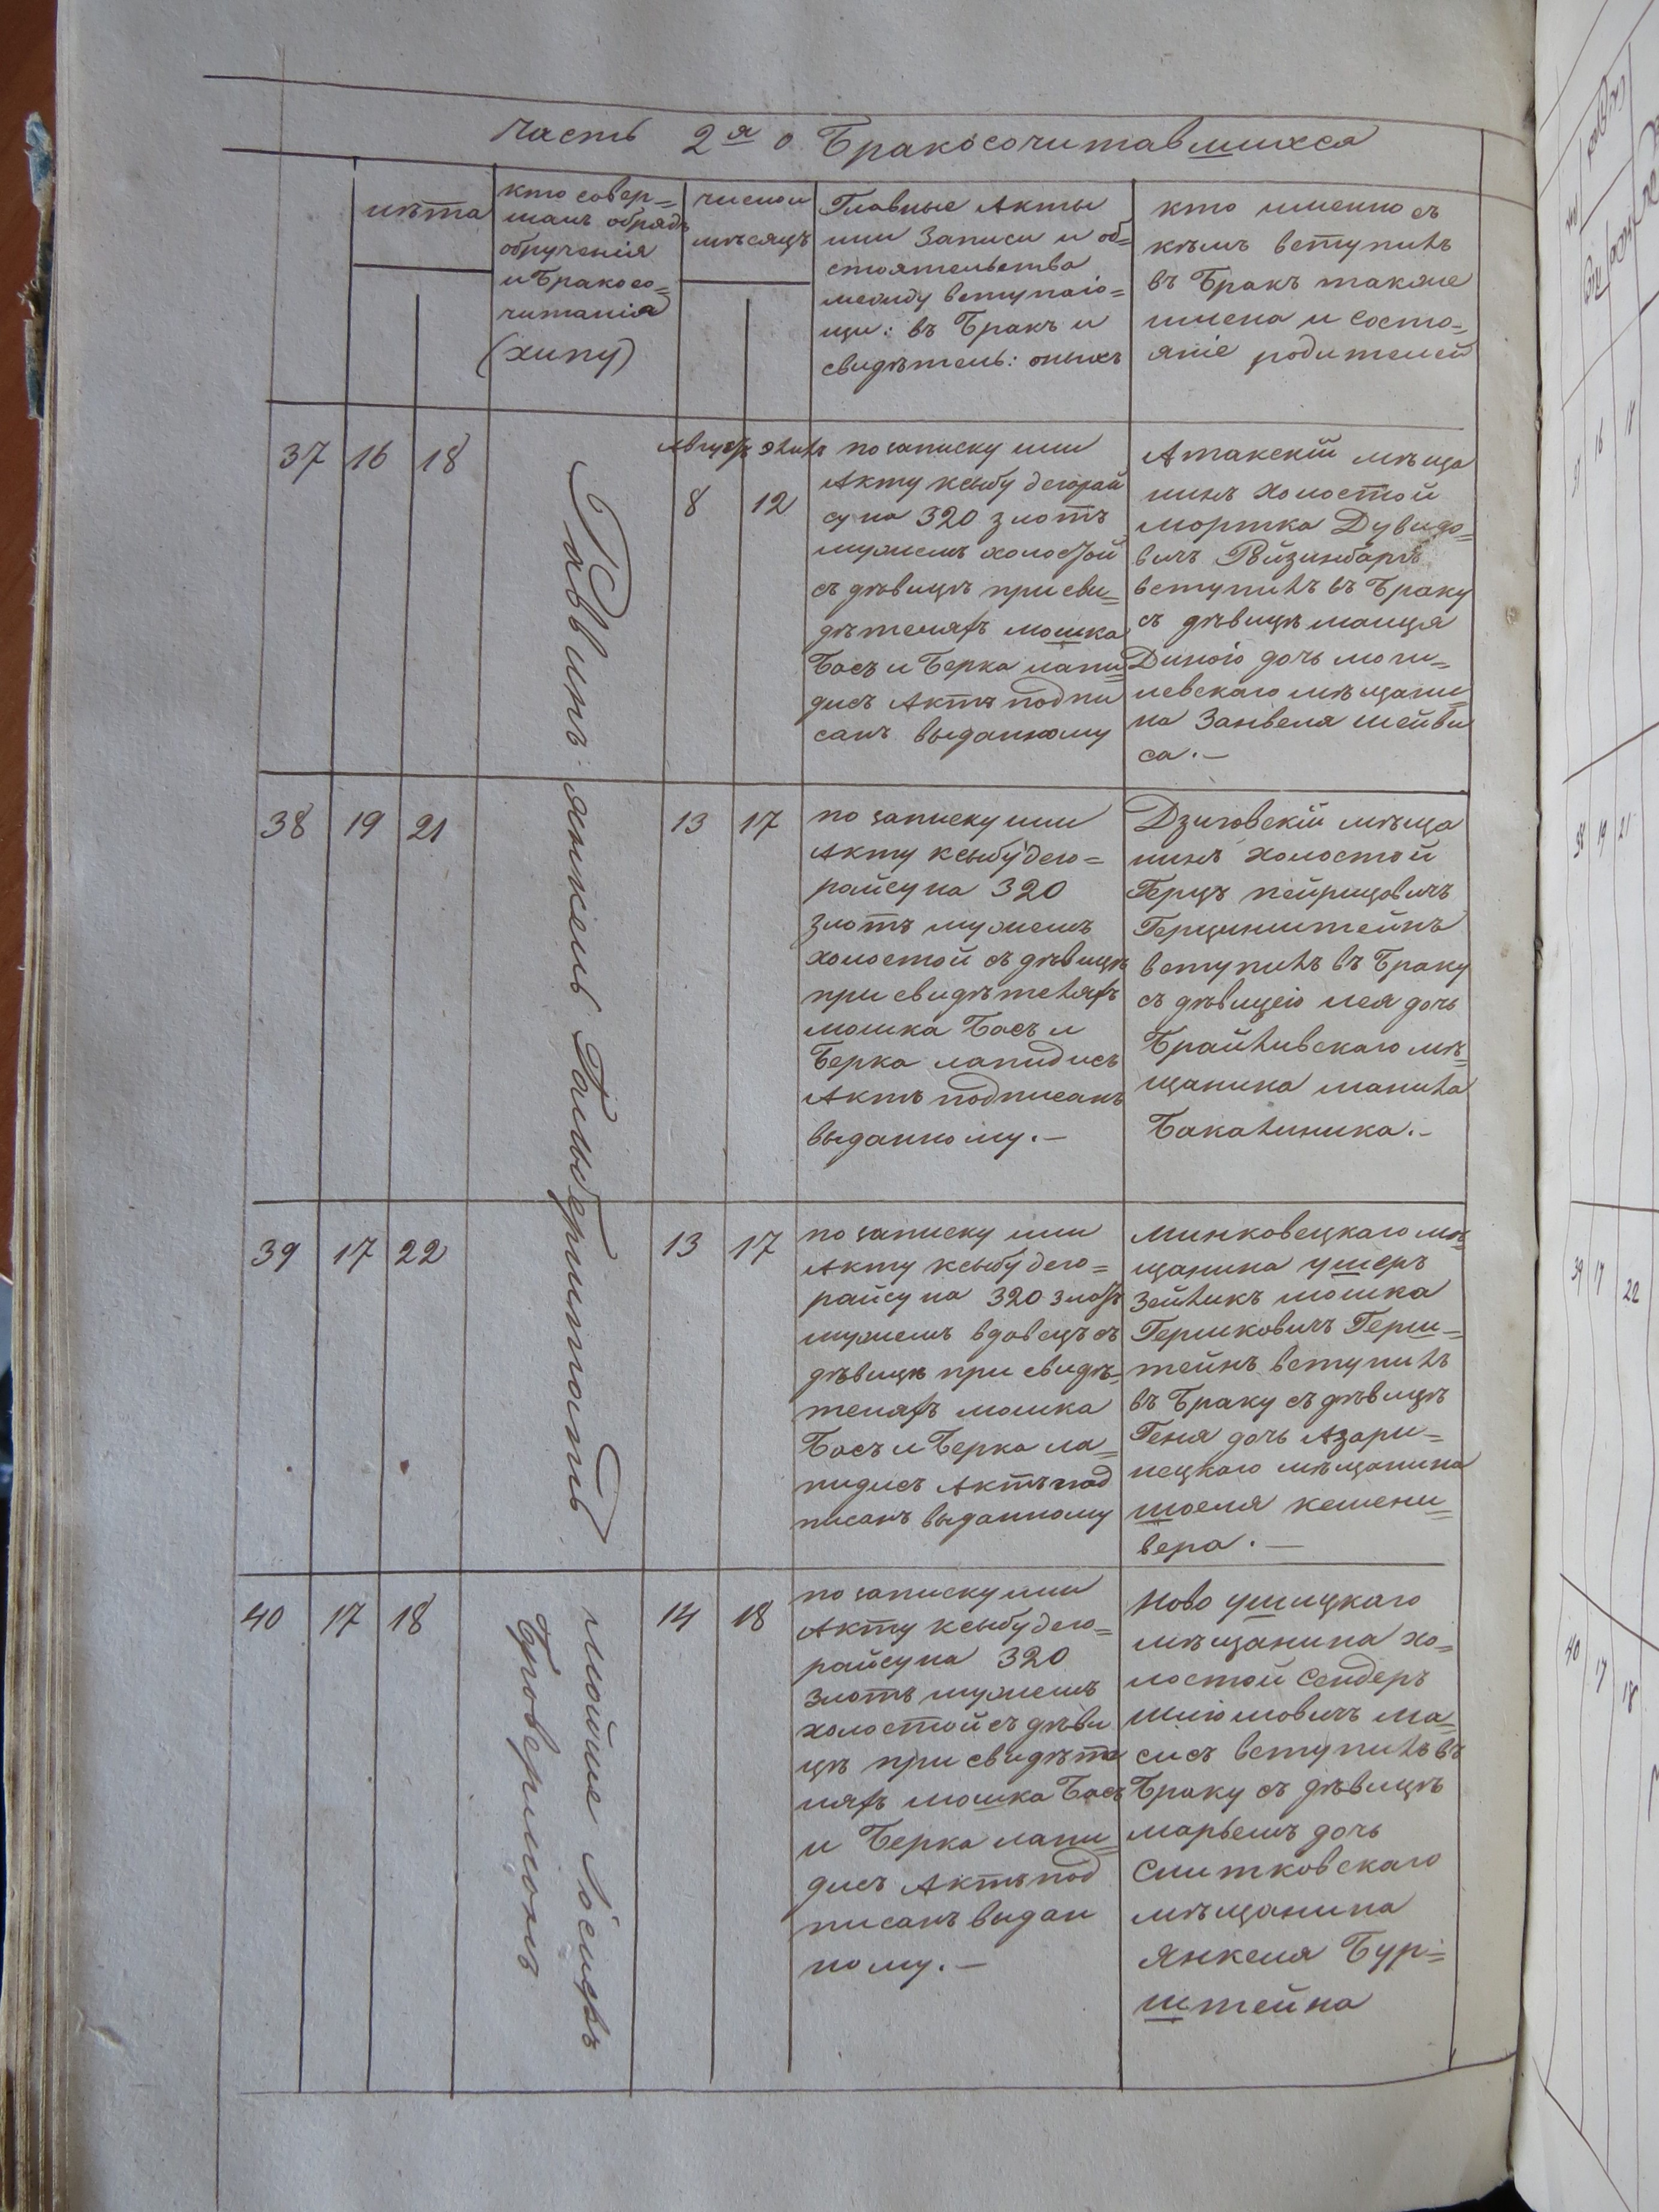 Часть 2я о Бракосочитавшихся
лѣта
кто совер=
шалъ обрядъ
обрученія
и Бракосо=
читанія
(хипу)
число и
мѣсяцъ
Главные Акты
или Записи и об=
стоятельства
между вступаю=
щи: въ Бракъ и
свидѣтель: оныхъ
кто именно съ
кѣмъ вступилъ
въ Бракъ также
имена и состо=
яніе родителей
37 16 18
8 12
по записку или
Акту ксыбу деорай
су на 320 злотъ
мужемъ холостой
съ дѣвицѣ при сви=
дѣтеляхъ мошка
Басъ и Берка лапи=
дисъ Актъ подпи
санъ выданному
Атакскій мѣща
нинъ холостой
мортка Дувидо=
вичъ
вступилъ въ Браку
съ дѣвицѣ
дочь моги=
левскаго мѣщани=
на Занвеля шейви
са.—
Раввинъ: янкель Гольбертитовъ
38 19 21
13 17
по записку или
Акту ксыбу део=
райсу на 320
злотъ мужемъ
холостой съ дѣвицѣ
при свидѣтеляхъ
мошка Басъ и
Берка лапидисъ
Актъ подписанъ
выданному.—
Дзиговскій мѣща
нинъ холостой
Герцъ лейрицовичъ
Герцинштейнъ
вступилъ въ Браку
съ дѣвицею лея дочь
Браиливскаго мѣ=
щанина манила
Бакалиника.—
39 17 22
13 17
по записку или
Акту ксыбу део=
райсу на 320 злотъ
мужемъ вдовецъ съ
дѣвицѣ при свидѣ=
теляхъ мошка
Басъ и Берка ла=
пидисъ Актъ под
писанъ выданному
минковецкаго мѣ=
щанина ушеръ
Зейликъ мошка
Гершковичъ Герш=
тейнъ вступилъ
въ Браку съ дѣвицѣ
Геня дочь Азари=
нецкаго мѣщанина
шоеля кешени=
вера.—
40 17 18
мойше Іосифъ
14 18
по записку или
Акту ксыбу део=
райсу на 320
злотъ мужемъ
холостой съ дѣви
цѣ при свидѣте
ляхъ мошка Басъ
и Берка лапи=
дисъ Актъ под
писанъ выдан
ному.—
Ново ушицкаго
мѣщанина хо=
лостой Сендеръ
шліомовичъ ма=
сисъ вступилъ въ
Браку съ дѣвицѣ
марьемъ дочь
Снитковскаго
мѣщанина
янкеля Бур=
штейна